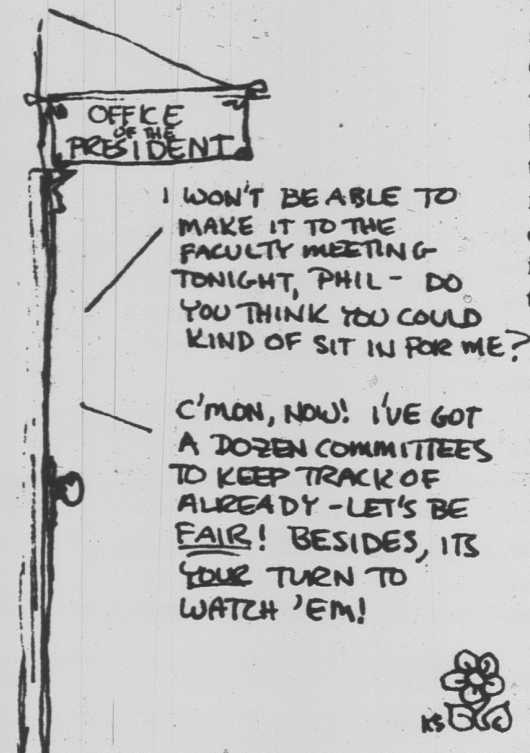 OFFICE
OF THE
PRESIDENT
I WON'T BE ABLE TO
MAKE IT TO THE
FACULTY MEETING
TONIGHT, PHIL - DO
YOU THINK YOU COULD
KIND OF SIT IN FOR ME?
C'MON, NOW! I'VE GOT
A DOZEN COMMITTEES
TO KEEP TRACK OF
ALREADY - LET'S BE
FAIR! BESIDES, ITS
YOUR TURN TO
WATCH 'EM!
KS